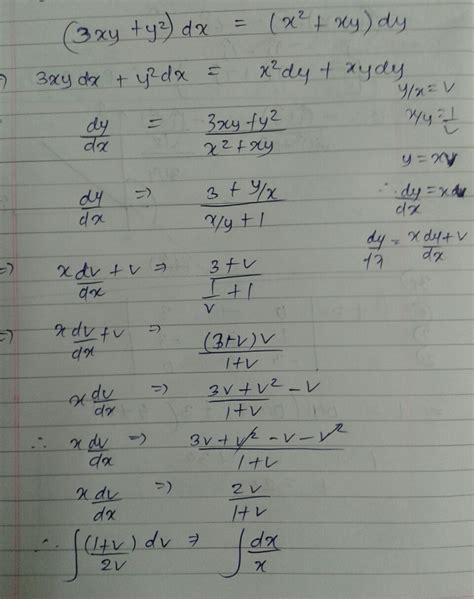 (3xy + y²) dx = (x² + xy) dy
⇒ 3xy dx + y²dx = x²dy + xydy
y/x = v
x/y = 1/v
y = xv
dy/dx = (3xy + y²)/(x² + xy)
dy/dx ⇒ (3 + y/x)/(x/y + 1)
∴ dy/dx = x
dy = (x dy + v)/dx
⇒ x dv/dx + v ⇒ (3 + v)/(1/v + 1)
⇒ x dv/dx + v ⇒ (3+v)v/(1+v)
x dv/dx ⇒ (3v + v²)/(1+v) - v
∴ x dv/dx ⇒ (3v + v² - v - v²)/(1+v)
x dv/dx ⇒ 2v/(1+v)
∴ ∫ (1+v)/2v dv ⇒ ∫ dx/x